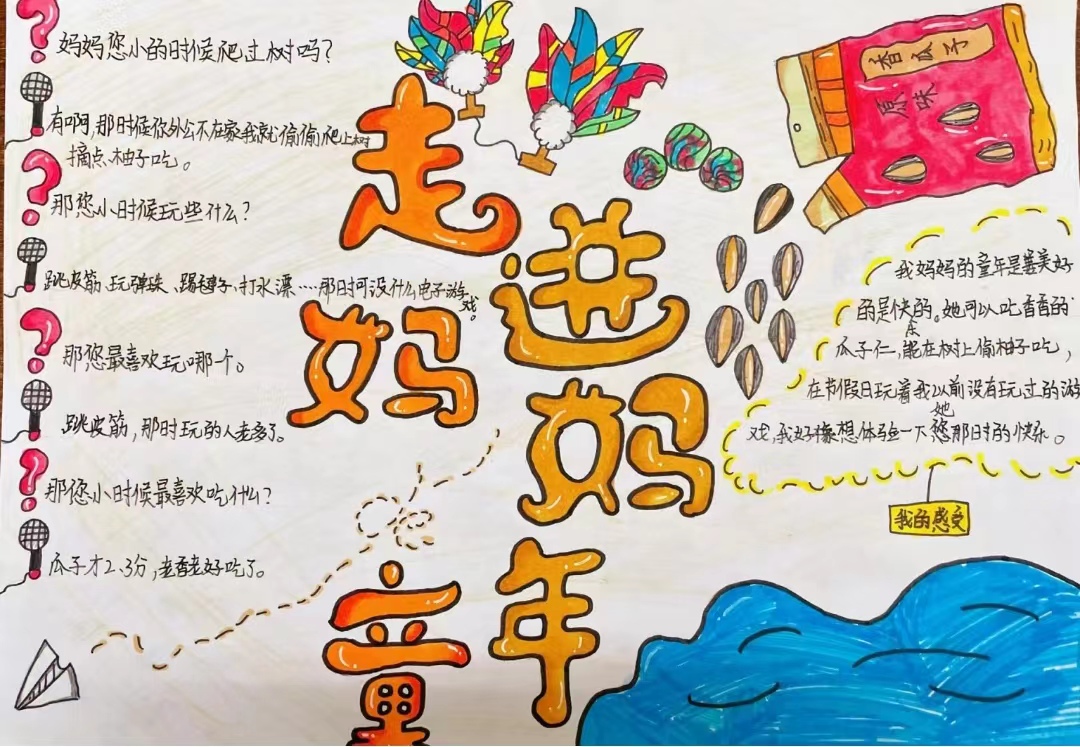 妈妈您小的时候爬过树吗?
有啊,那时候你外公不在家我就偷偷爬上树
摘点柚子吃。
那您小时候玩些什么?
跳皮筋、玩弹珠、踢毽子、打水漂……那时可没什么电子游
戏。
那您最喜欢玩哪个。
跳皮筋,那时玩的人老多了。
那您小时候最喜欢吃什么?
瓜子才2、3分,老香老好吃了。
走进妈妈童年
香瓜子
原味
我妈妈的童年是最美好
的是快乐的。她可以吃香香的
瓜子仁,能在树上偷柚子吃,
在节假日玩着我以前没有玩过的游
戏,我好像想体验一下她那时的快乐。
我的感受